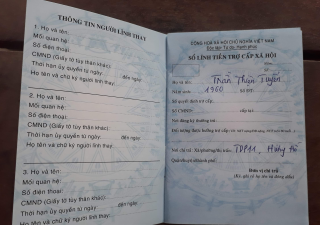 THÔNG TIN NGƯỜI LĨNH THAY
1. Họ và tên:
Mối quan hệ:
Số điện thoại:
CMND (Giấy tờ tùy thân khác)
Thời hạn ủy quyền từ ngày: đến ngày
Họ tên và chữ ký người lĩnh thay:
2. Họ và tên:
Mối quan hệ:
Số điện thoại:
CMND (Giấy tờ tùy thân khác)
Thời hạn ủy quyền từ ngày: đến ngày
Họ tên và chữ ký người lĩnh thay:
3. Họ và tên:
Mối quan hệ:
Số điện thoại:
CMND (Giấy tờ tùy thân khác)
Thời hạn ủy quyền từ ngày: đến ngày
Họ tên và chữ ký người lĩnh thay:
CỘNG HOÀ XÃ HỘI CHỦ NGHĨA VIỆT NAM
Độc lập - Tự do - Hạnh phúc
SỔ LĨNH TIỀN TRỢ CẤP XÃ HỘI
Họ và tên: Trần Thiện Tuyên
Năm sinh: 1960
Số quyết định trợ cấp:
Số CMND:
Nơi đăng ký thường trú:
Nơi chi trả: Xã/phường/thị trấn: TDP11,
Quận/huyện/thành phố:
Đơn vị chi trả
(Ký, ghi rõ họ tên và đóng dấu)